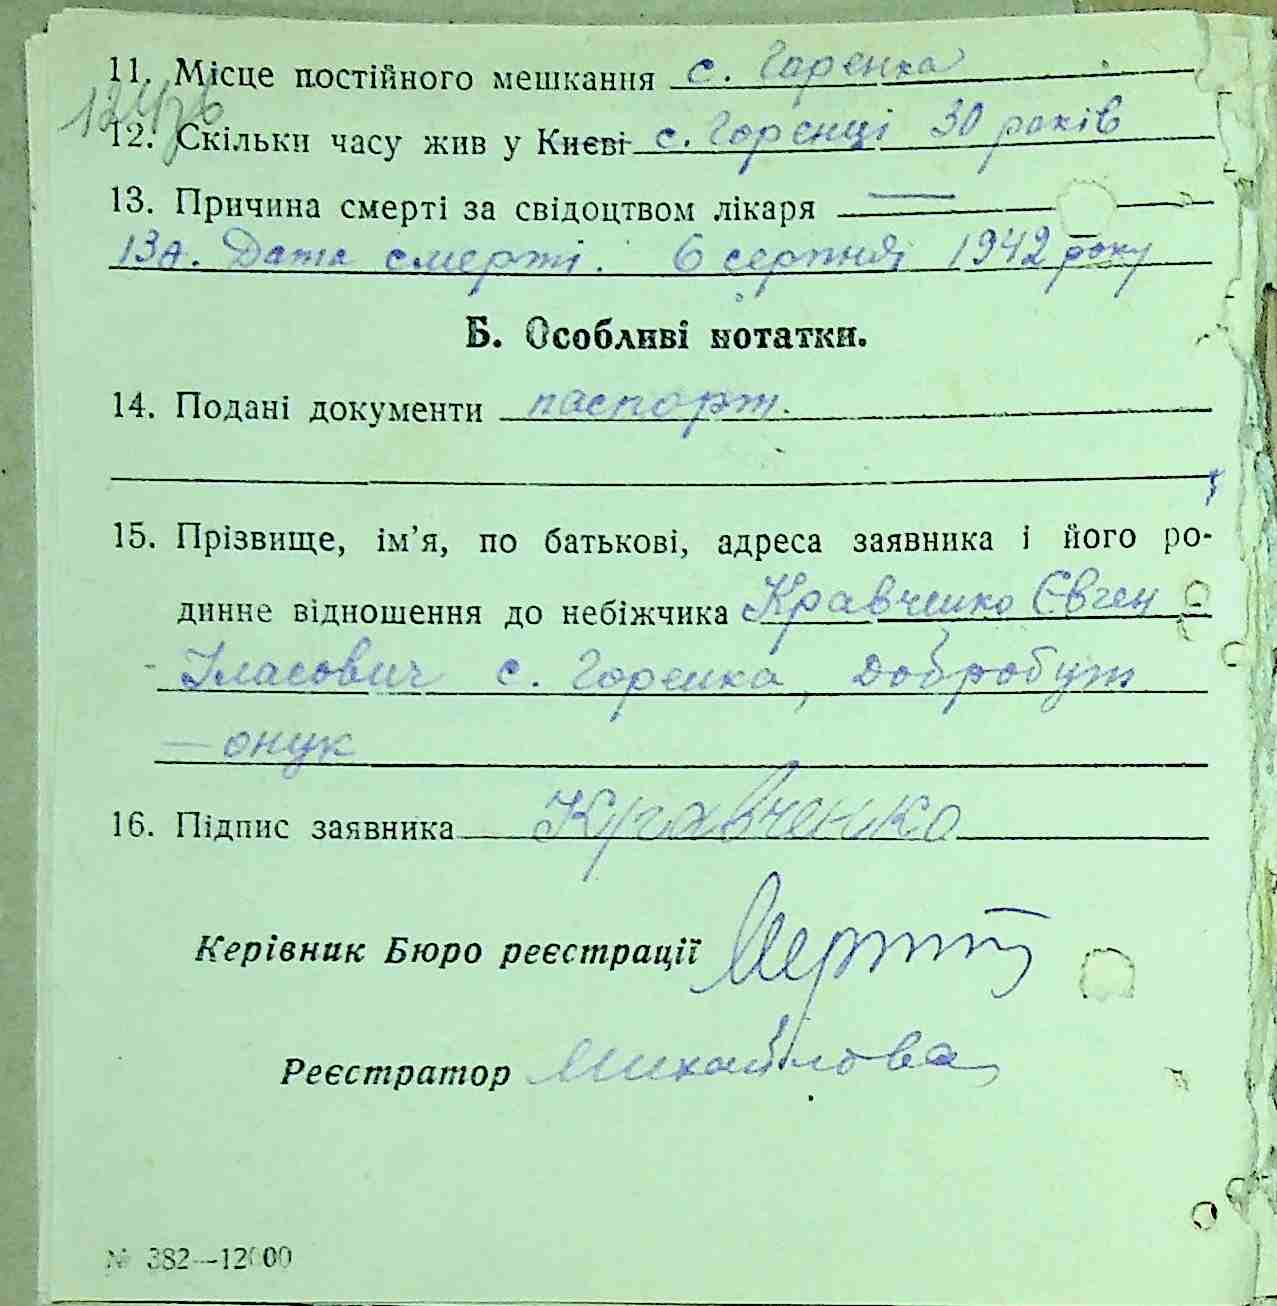 11. Місце постійного мешкання с. Горенка
12. Скільки часу жив у Києві с. Горенці 30 років
13. Причина смерті за свідоцтвом лікаря —
13А. Дата смерті. 6 серпня 1942 року
Б. Особливі нотатки.
14. Подані документи паспорт.
15. Прізвище, ім’я, по батькові, адреса заявника і його ро-
динне відношення до небіжчика Кравченко Євген
Уласович с. Горенка, Добробут
— онук
16. Підпис заявника Кравченко
Керівник Бюро реєстрації
Реєстратор Михайлова
№ 382—12000